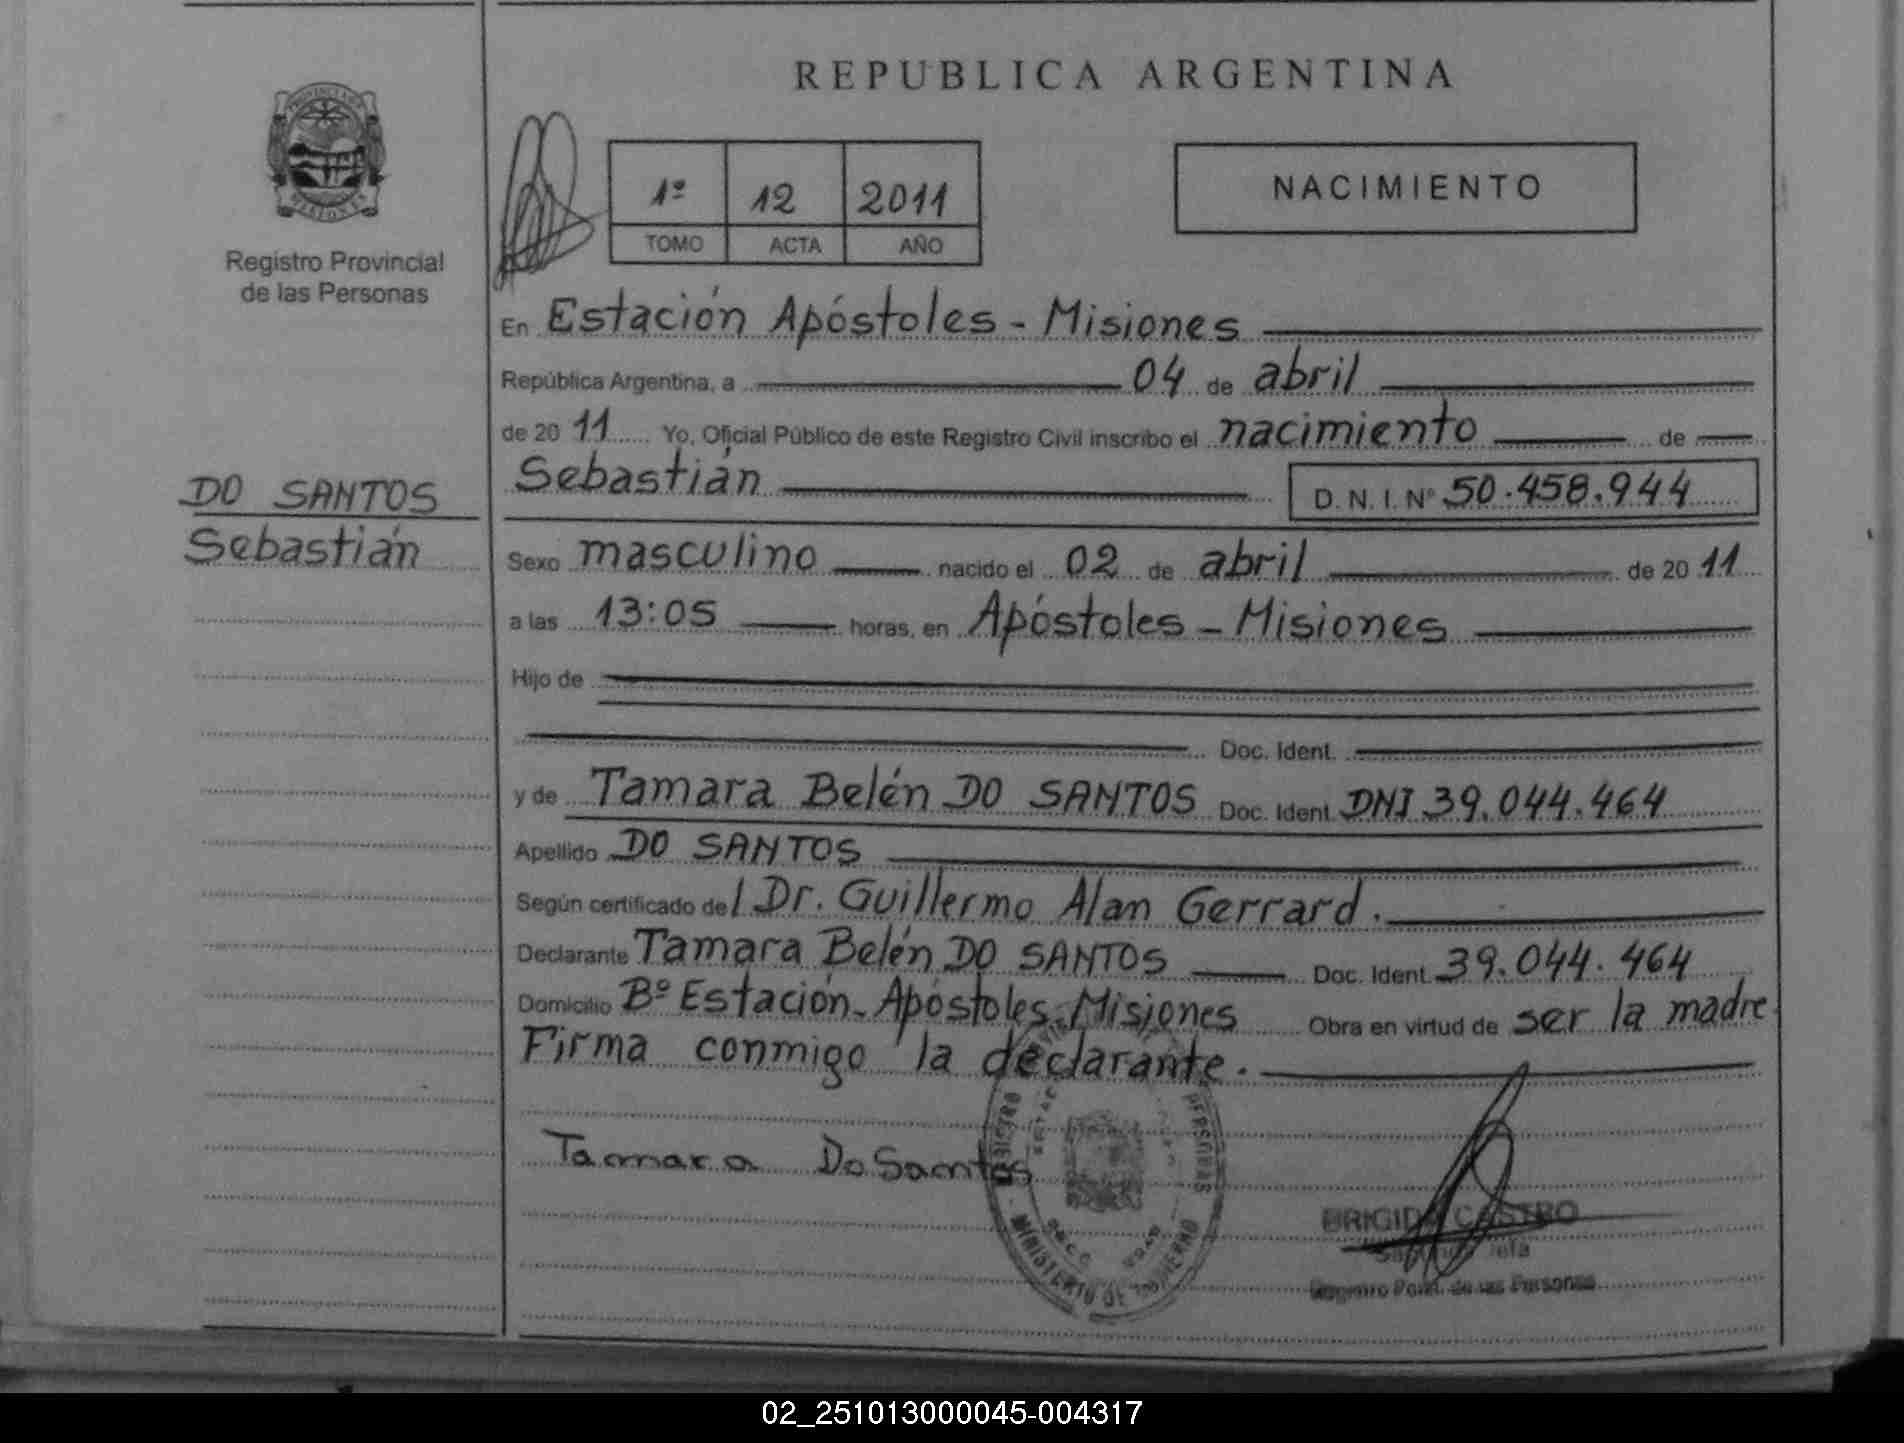 REPUBLICA ARGENTINA
1º 12 2011
TOMO ACTA AÑO
NACIMIENTO
Registro Provincial
de las Personas
En Estación Apóstoles - Misiones
República Argentina, a 04 de abril
de 2011 Yo, Oficial Público de este Registro Civil inscribo el nacimiento de
Sebastián D. N. I. Nº 50.458.944
DO SANTOS
Sebastián
Sexo masculino nacido el 02 de abril de 2011
a las 13:05 horas, en Apóstoles - Misiones
Hijo de
Doc. Ident.
y de Tamara Belén DO SANTOS Doc. Ident. DNI 39.044.464
Apellido DO SANTOS
Según certificado del Dr. Guillermo Alan Gerrard.
Declarante Tamara Belén DO SANTOS Doc. Ident. 39.044.464
Domicilio Bº Estación - Apóstoles - Misiones Obra en virtud de ser la madre.
Firma conmigo la declarante.
Tamara Do Santos
MINISTERIO DE GOBIERNO
PERSONAS
BRIGIDA CASTRO
Jefa
de las Personas
02_251013000045-004317